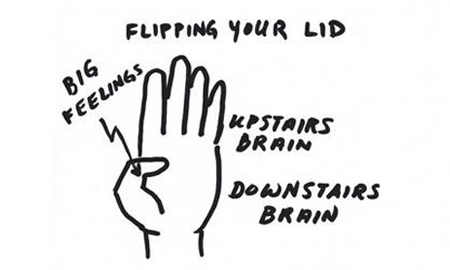 FLIPPING YOUR LID
BIG
FEELINGS
UPSTAIRS
BRAIN
DOWNSTAIRS
BRAIN